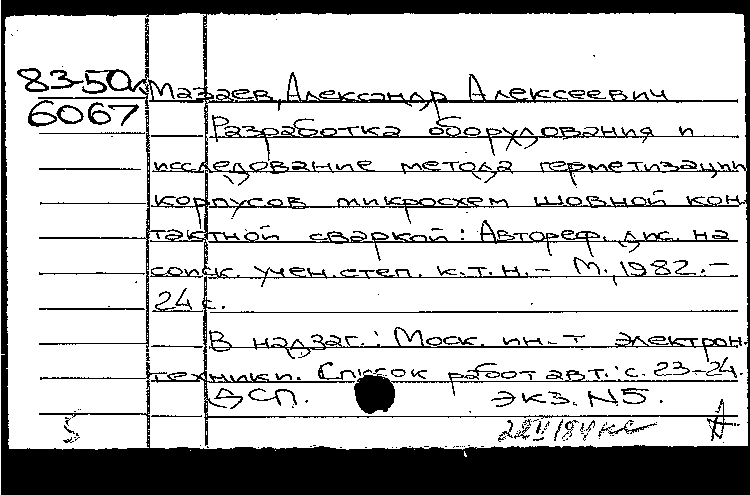 83-50к
6067
Мазаев, Александр Алексеевич
Разработка оборудования и
исследование метода герметизации
корпусов микросхем шовной кон
тактной сваркой: Автореф. дис. на
соиск. учен. степ. к.т.н. - М., 1982. -
24 с.
В надзаг.: Моск. ин-т электрон.
техники. Список работ авт.: с. 23-24.
ДСП. ЭКЗ. N5.
5